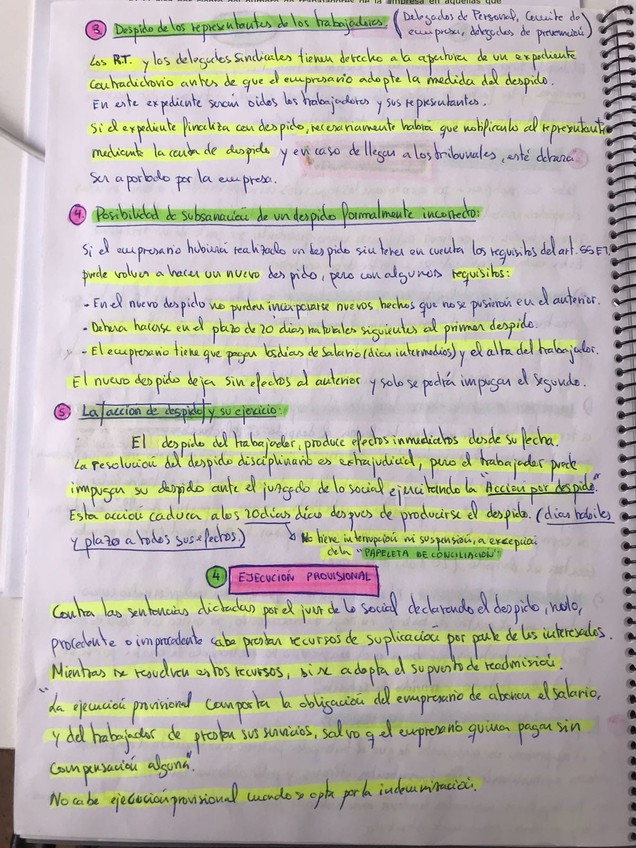 de la empresa en aquellas que
3. Despido de los representantes de los trabajadores (Delegados de Personal, Comite de
empresa, delegados de prevención)
Los R.T. y los delegados sindicales tienen derecho a la apertura de un expediente
contradictorio antes de que el empresario adopte la medida del despido.
En este expediente seran oidos los trabajadores y sus representantes.
Si el expediente finaliza con despido, necesariamente habrá que notificarlo al representante
mediante la carta de despido y en caso de llegar a los tribunales, esté deberá
ser aportado por la empresa.
4. Posibilidad de subsanación de un despido formalmente incorrecto:
Si el empresario hubiera realizado un despido sin tener en cuenta los requisitos del art. 55 ET,
puede volver a hacer un nuevo despido, pero con algunos requisitos:
- En el nuevo despido no pueden incorporarse nuevos hechos que no se pusieron en el anterior.
- Debera hacerse en el plazo de 20 dias naturales siguientes al primer despido.
- El empresario tiene que pagar los dias de salario (dias intermedios) y el alta del trabajador.
El nuevo despido deja sin efectos al anterior y solo se podrá impugar el segundo.
5 La acción de despido y su ejercicio:
El despido del trabajador, produce efectos inmediatos desde su fecha.
La resolución del despido disciplinario es extrajudicial, pero el trabajador puede
impugar su despido ante el juzgado de lo social ejercitando la "Acción por despido"
Esta acción caduca a los 20 dias dias despues de producirse el despido. (dias habiles
y plazo a todos sus efectos.) No tiene interrupción ni suspensión, a excepción
de la "PAPELETA DE CONCILIACIÓN"
4 EJECUCIÓN PROVISIONAL
Contra las sentencias dictadas por el juez de lo social declarando el despido, nulo,
procedente o improcedente cabe prestar recursos de suplicación por parte de los interesados.
Mientras se resuelven estos recursos, si se adopta el supuesto de readmisión.
"La ejecución provisional comporta la obligación del empresario de abonar el salario,
y del trabajador de prestar sus servicios, salvo q el empresario quiera pagar sin
compensación alguna".
No cabe ejecución provisional cuando se opta por la indemnización.